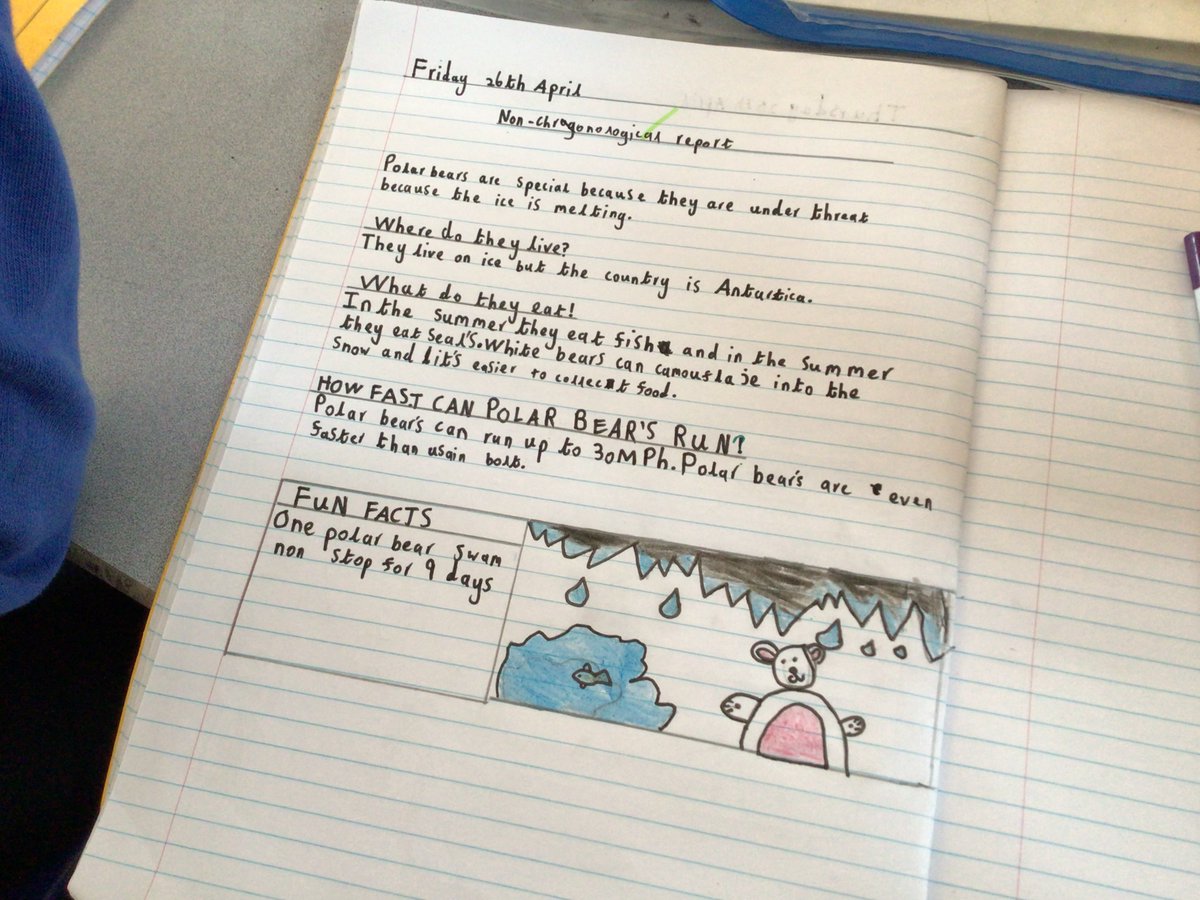 Friday 26th April
Non-chrogonological report
Polar bears are special because they are under threat
because the ice is melting.
Where do they live?
They live on ice but the country is Antartica.
What do they eat!
In the summer they eat fish and in the summer
they eat seal's. White bears can camouflaje into the
snow and it's easier to collect food.
HOW FAST CAN POLAR BEAR'S RUN?
Polar bear's can run up to 30MPh. Polar bear's are even
faster than usain bolt.
FUN FACTS
One polar bear swam
non stop for 9 days